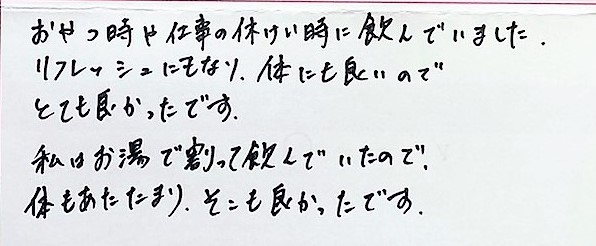 おやつ時や仕事の休けい時に飲んでいました.
リフレッシュにもなり、体にも良いので
とても良かったです.
私はお湯で割って飲んでいたので、
体もあたたまり、そこも良かったです.